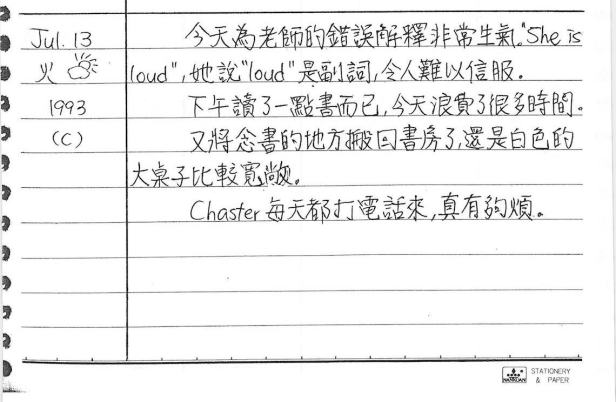 Jul. 13
火
1993
(C)
今天為老師的錯誤解釋非常生氣。"She is
loud", 她說"loud"是副詞, 令人難以信服。
下午讀了一點書而已, 今天浪費了很多時間。
又將念書的地方搬回書房了, 還是白色的
大桌子比較寬敞。
Chaster 每天都打電話來, 真有夠煩。
NANKUAN
STATIONERY
& PAPER